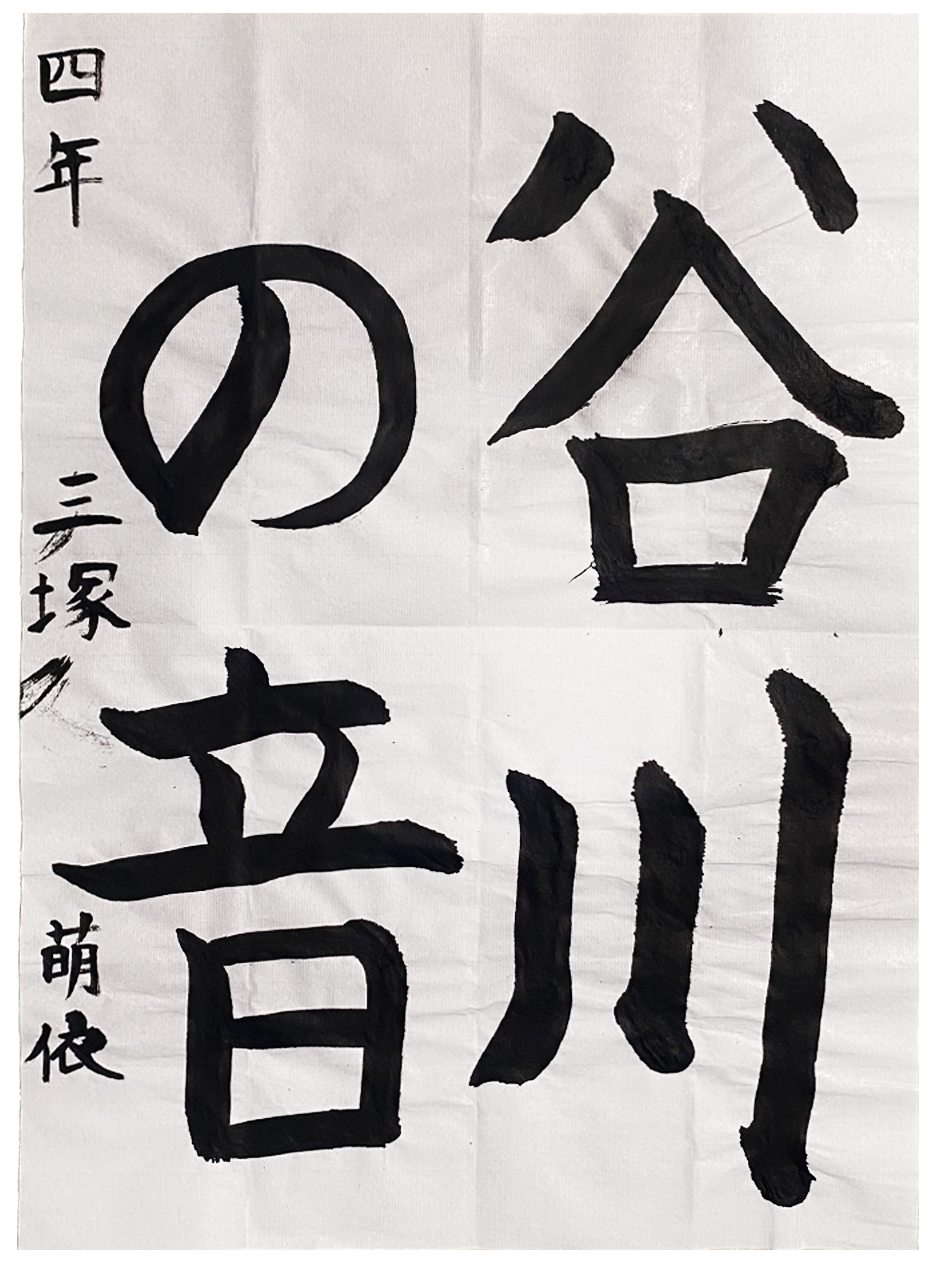 谷川
の音
四年 三塚 萌依